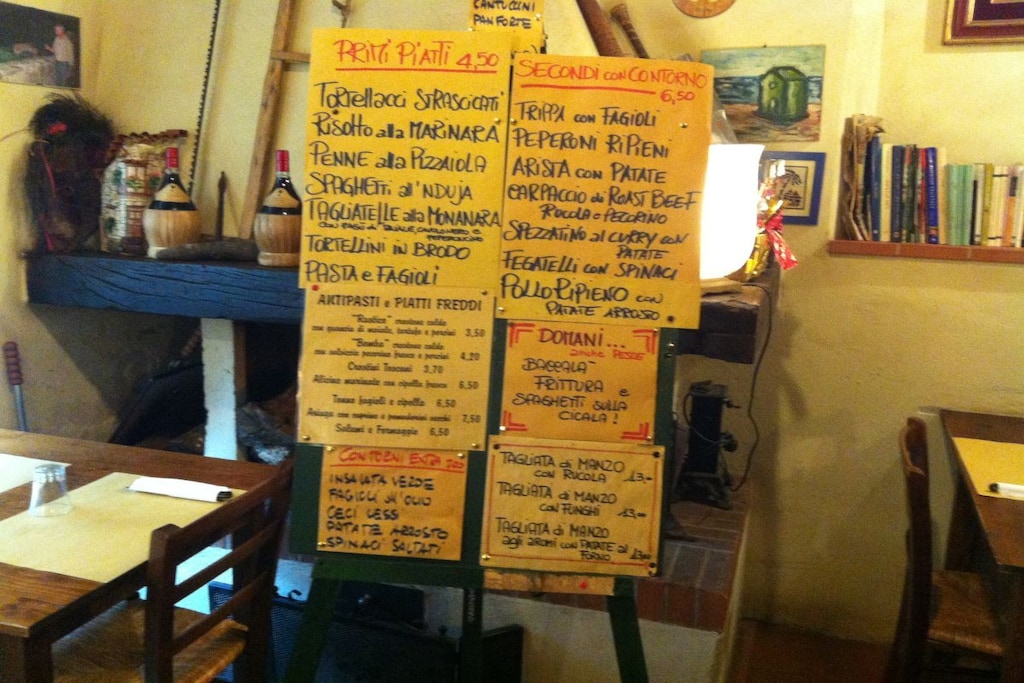 CANTUCCINI
PANFORTE
PRIMI PIATTI 4,50
TORTELLACCI STRASCICATI
RISOTTO alla MARINARA
PENNE alla PIZZAIOLA
SPAGHETTI all'NDUJA
TAGLIATELLE alla MONANARA
PEPERONCINO
TORTELLINI in BRODO
PASTA e FAGIOLI
SECONDI con CONTORNO
6,50
TRIPPA con FAGIOLI
PEPERONI RIPIENI
ARISTA con PATATE
CARPACCIO di ROAST BEEF
RUCOLA e PECORINO
SPEZZATINO al CURRY con
PATATE
FEGATELLI con SPINACI
POLLO RIPIENO con
PATATE ARROSTO
ANTIPASTI e PIATTI FREDDI
"Rustico" crostone caldo
con guancia di maiale, tartufo e porcini 3,50
"Bomba" crostone caldo
con salsiccia pecorino fresco e porcini 4,20
Crostini Toscani 3,70
Alicine marinate con cipolla fresca 6,50
Tonno fagioli e cipolla 6,50
Aringa con caprino e pomodorini secchi 7,50
Salumi e Formaggio 6,50
DOMANI...
anche PESCE
BACCALA'
FRITTURA e
SPAGHETTI SULLA
CICALA!
CONTORNI EXTRA
INSALATA VERDE
FAGIOLI all'OLIO
CECI LESSI
PATATE ARROSTO
SPINACI SALTATI
TAGLIATA di MANZO
CON RUCOLA 13,-
TAGLIATA di MANZO
con FUNGHI 13,00
TAGLIATA di MANZO
agli aromi con PATATE al
FORNO 13,00